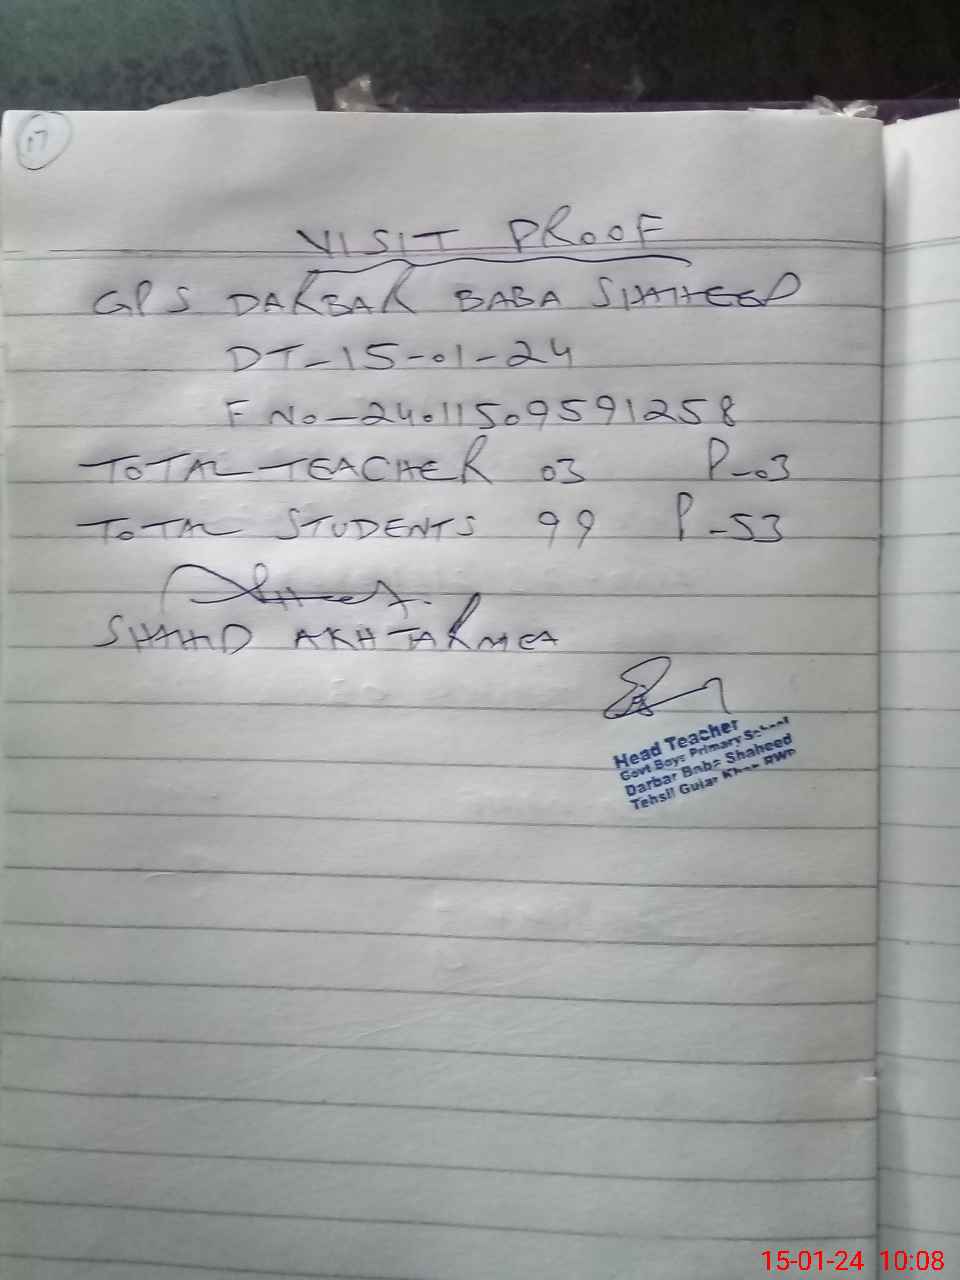 17
VISIT PROOF
GPS DARBAR BABA SHAHEED
DT-15-01-24
F NO-24011509591258
TOTAL TEACHER 03 P-03
TOTAL STUDENTS 99 P-53
SHAHID AKHTAR MEA
Head Teacher
Govt Boys Primary School
Darbar Baba Shaheed
Tehsil Gujar Khan RWP
15-01-24 10:08